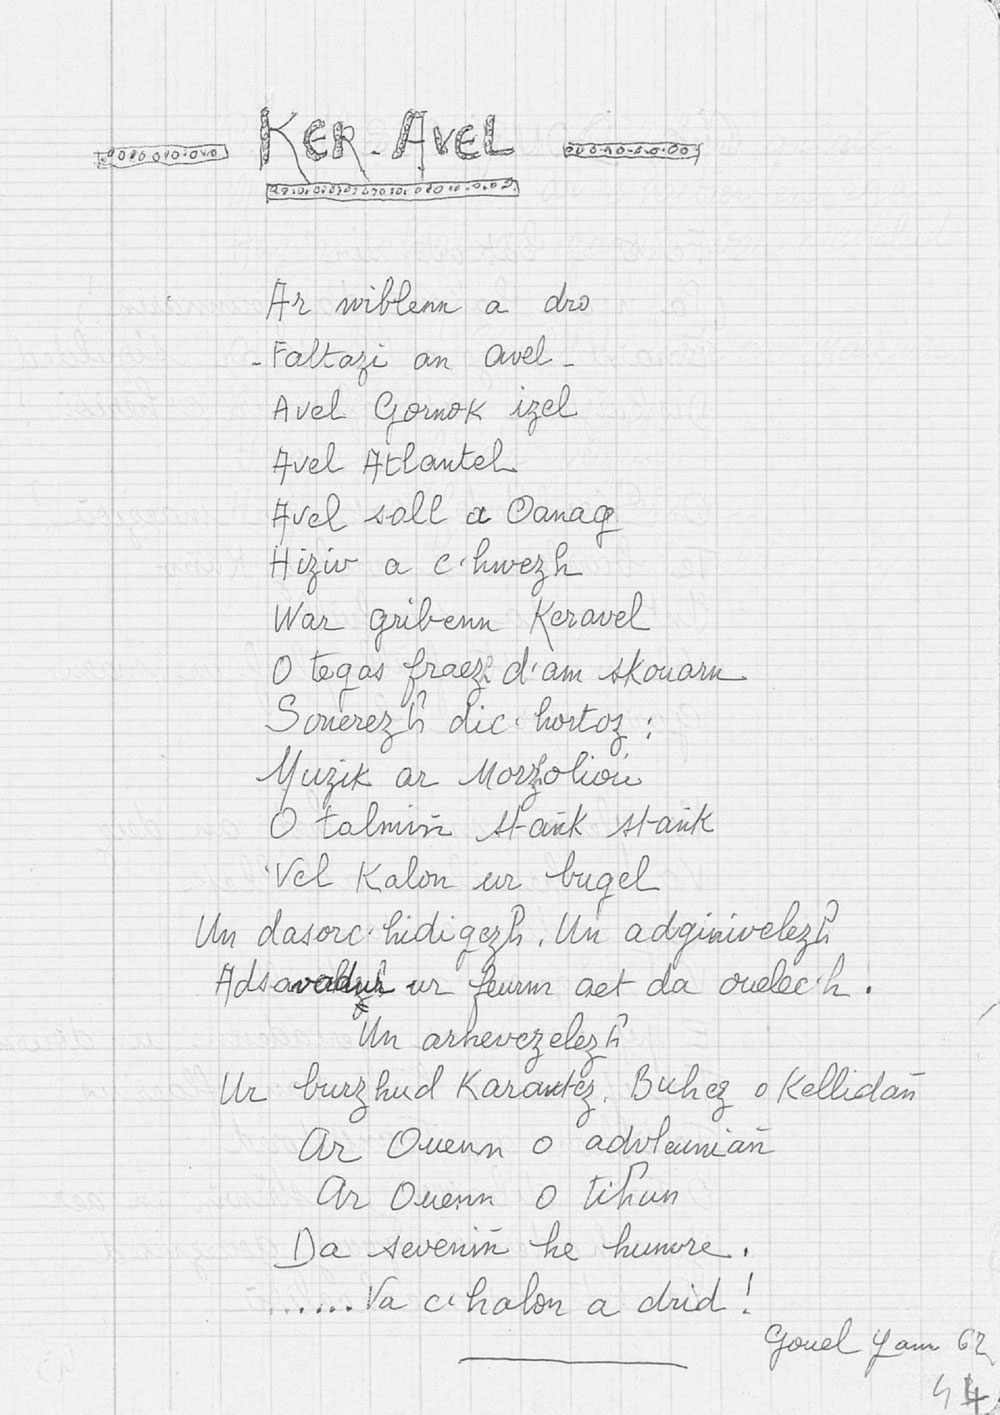 KER-AVEL
Ar wiblenn a dro
- Faltazi an avel -
Avel Gornok izel
Avel Atlantel
Avel soll a Oanag
Hiziv a c'hwezh
War gribenn Keravel
O tegas fraezh d'am skouarn
Sonerezh dic'hortoz :
Muzik ar Morzholioù
O talmiñ stañk stañk
'Vel Kalon ur bugel
Un dasorc'hidigezh, Un adginivelezh
ur feurm aet da ouelec'h.
Un arnevezelezh
Ur burzhud Karantez. Buhez o Kellidañ
Ar Ouenn o advleuniañ
Ar Ouenn o tihun
Da seveniñ he hunvre.
......Va c'halon a drid !
Gouel Yann 62
44